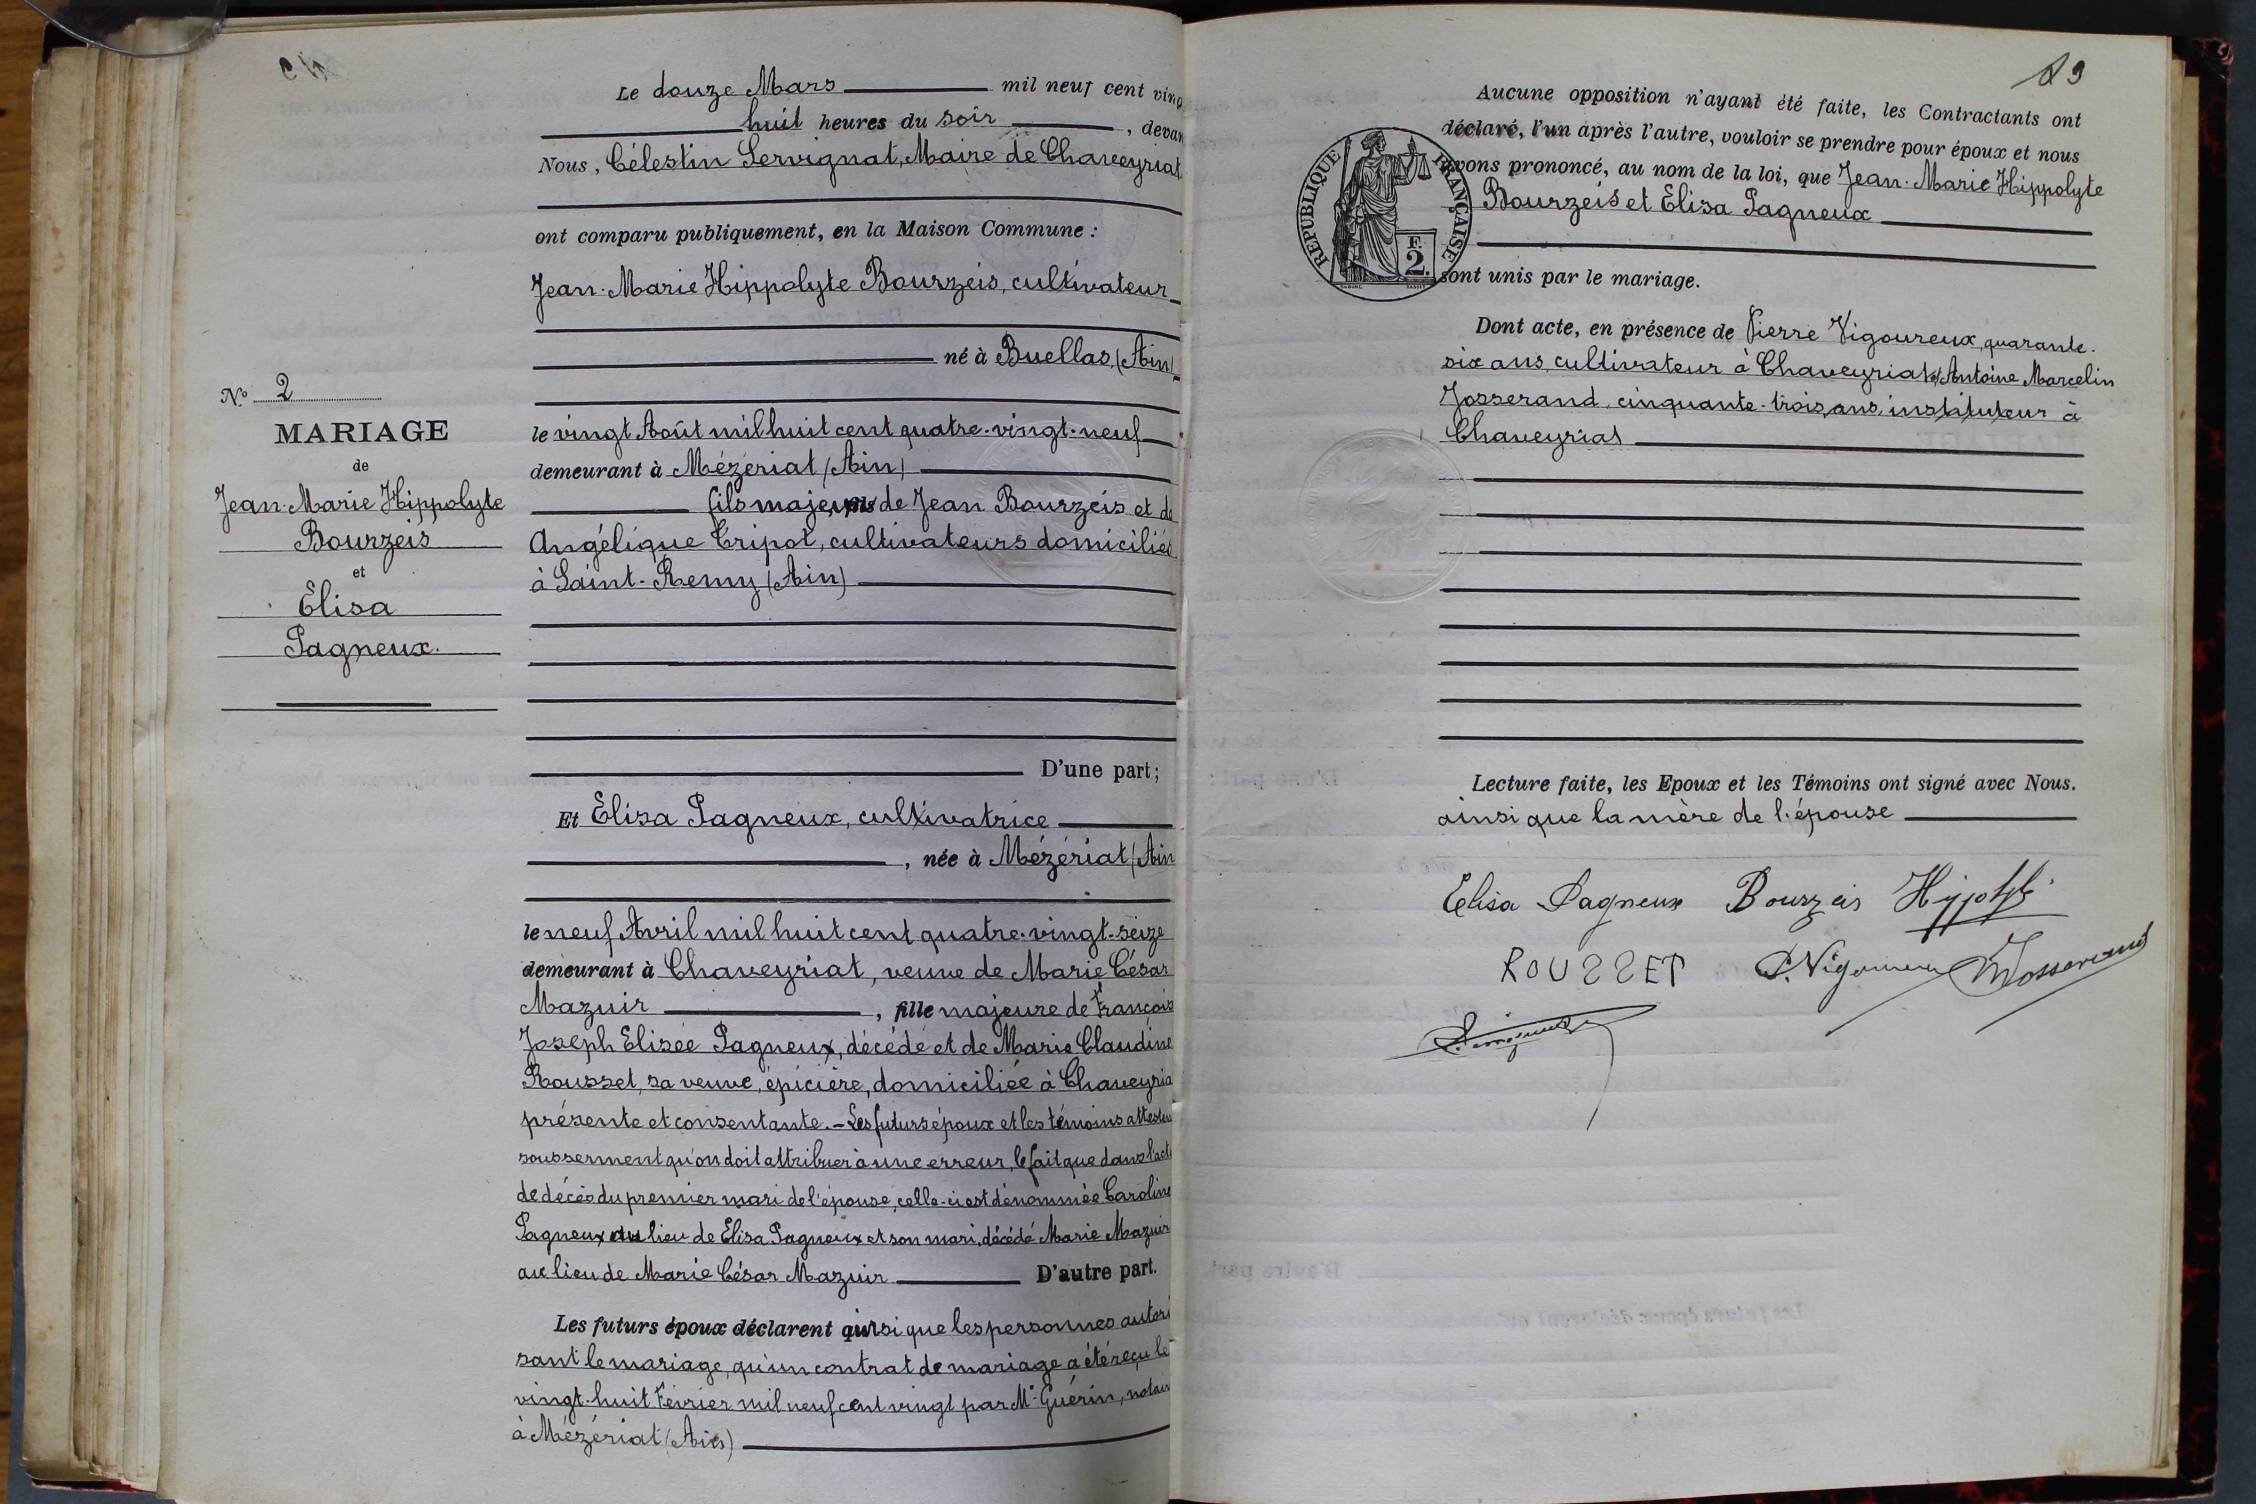 Le douze Mars mil neuf cent ving
huit heures du soir, devan
Nous, Célestin Servignat, Maire de Chaveyriat
ont comparu publiquement, en la Maison Commune :
Jean-Marie Hippolyte Bourzeis, cultivateur
né à Buellas, (Ain)
No 2
MARIAGE
de
Jean-Marie Hippolyte
Bourzeis
et
Elisa
Pagneux.
le vingt Août mil huit cent quatre-vingt-neuf
demeurant à Mézériat (Ain)
fils majeur de Jean Bourzeis et de
Angélique Tripot, cultivateurs domiciliés
à Saint-Remy (Ain)
D'une part ;
Et Elisa Pagneux, cultivatrice
, née à Mézériat (Ain
le neuf Avril mil huit cent quatre-vingt-seize
demeurant à Chaveyriat, veuve de Marie César
Mazuir, fille majeure de François
Joseph Elisée Pagneux, décédé et de Marie Claudine
Rousset, sa veuve, épicière, domiciliée à Chaveyria
présente et consentante. - Les futurs époux et les témoins attesten
sous serment qu'on doit attribuer à une erreur, le fait que dans l'acte
de décès du premier mari de l'épouse, celle-ci est dénommée Caroline
Pagneux au lieu de Elisa Pagneux et son mari, décédé Marie Mazuir
au lieu de Marie César Mazuir D'autre part.
Les futurs époux déclarent ainsi que les personnes autori
sant le mariage, qu'un contrat de mariage a été reçu le
vingt-huit Février mil neuf cent vingt par Me Guérin, notair
à Mézériat (Ain)
89
Aucune opposition n'ayant été faite, les Contractants ont
déclaré, l'un après l'autre, vouloir se prendre pour époux et nous
avons prononcé, au nom de la loi, que Jean-Marie Hippolyte
Bourzeis et Elisa Pagneux
sont unis par le mariage.
RÉPUBLIQUE FRANÇAISE
F.
2.
Dont acte, en présence de Pierre Vigoureux, quarante-
six ans, cultivateur à Chaveyriat et Antoine Marcelin
Josserand, cinquante-trois ans, instituteur à
Chaveyriat
Lecture faite, les Epoux et les Témoins ont signé avec Nous.
ainsi que la mère de l'épouse
Elisa Pagneux Bourzeis Hippolyte
ROUSSET P. Vigoureux Josserand